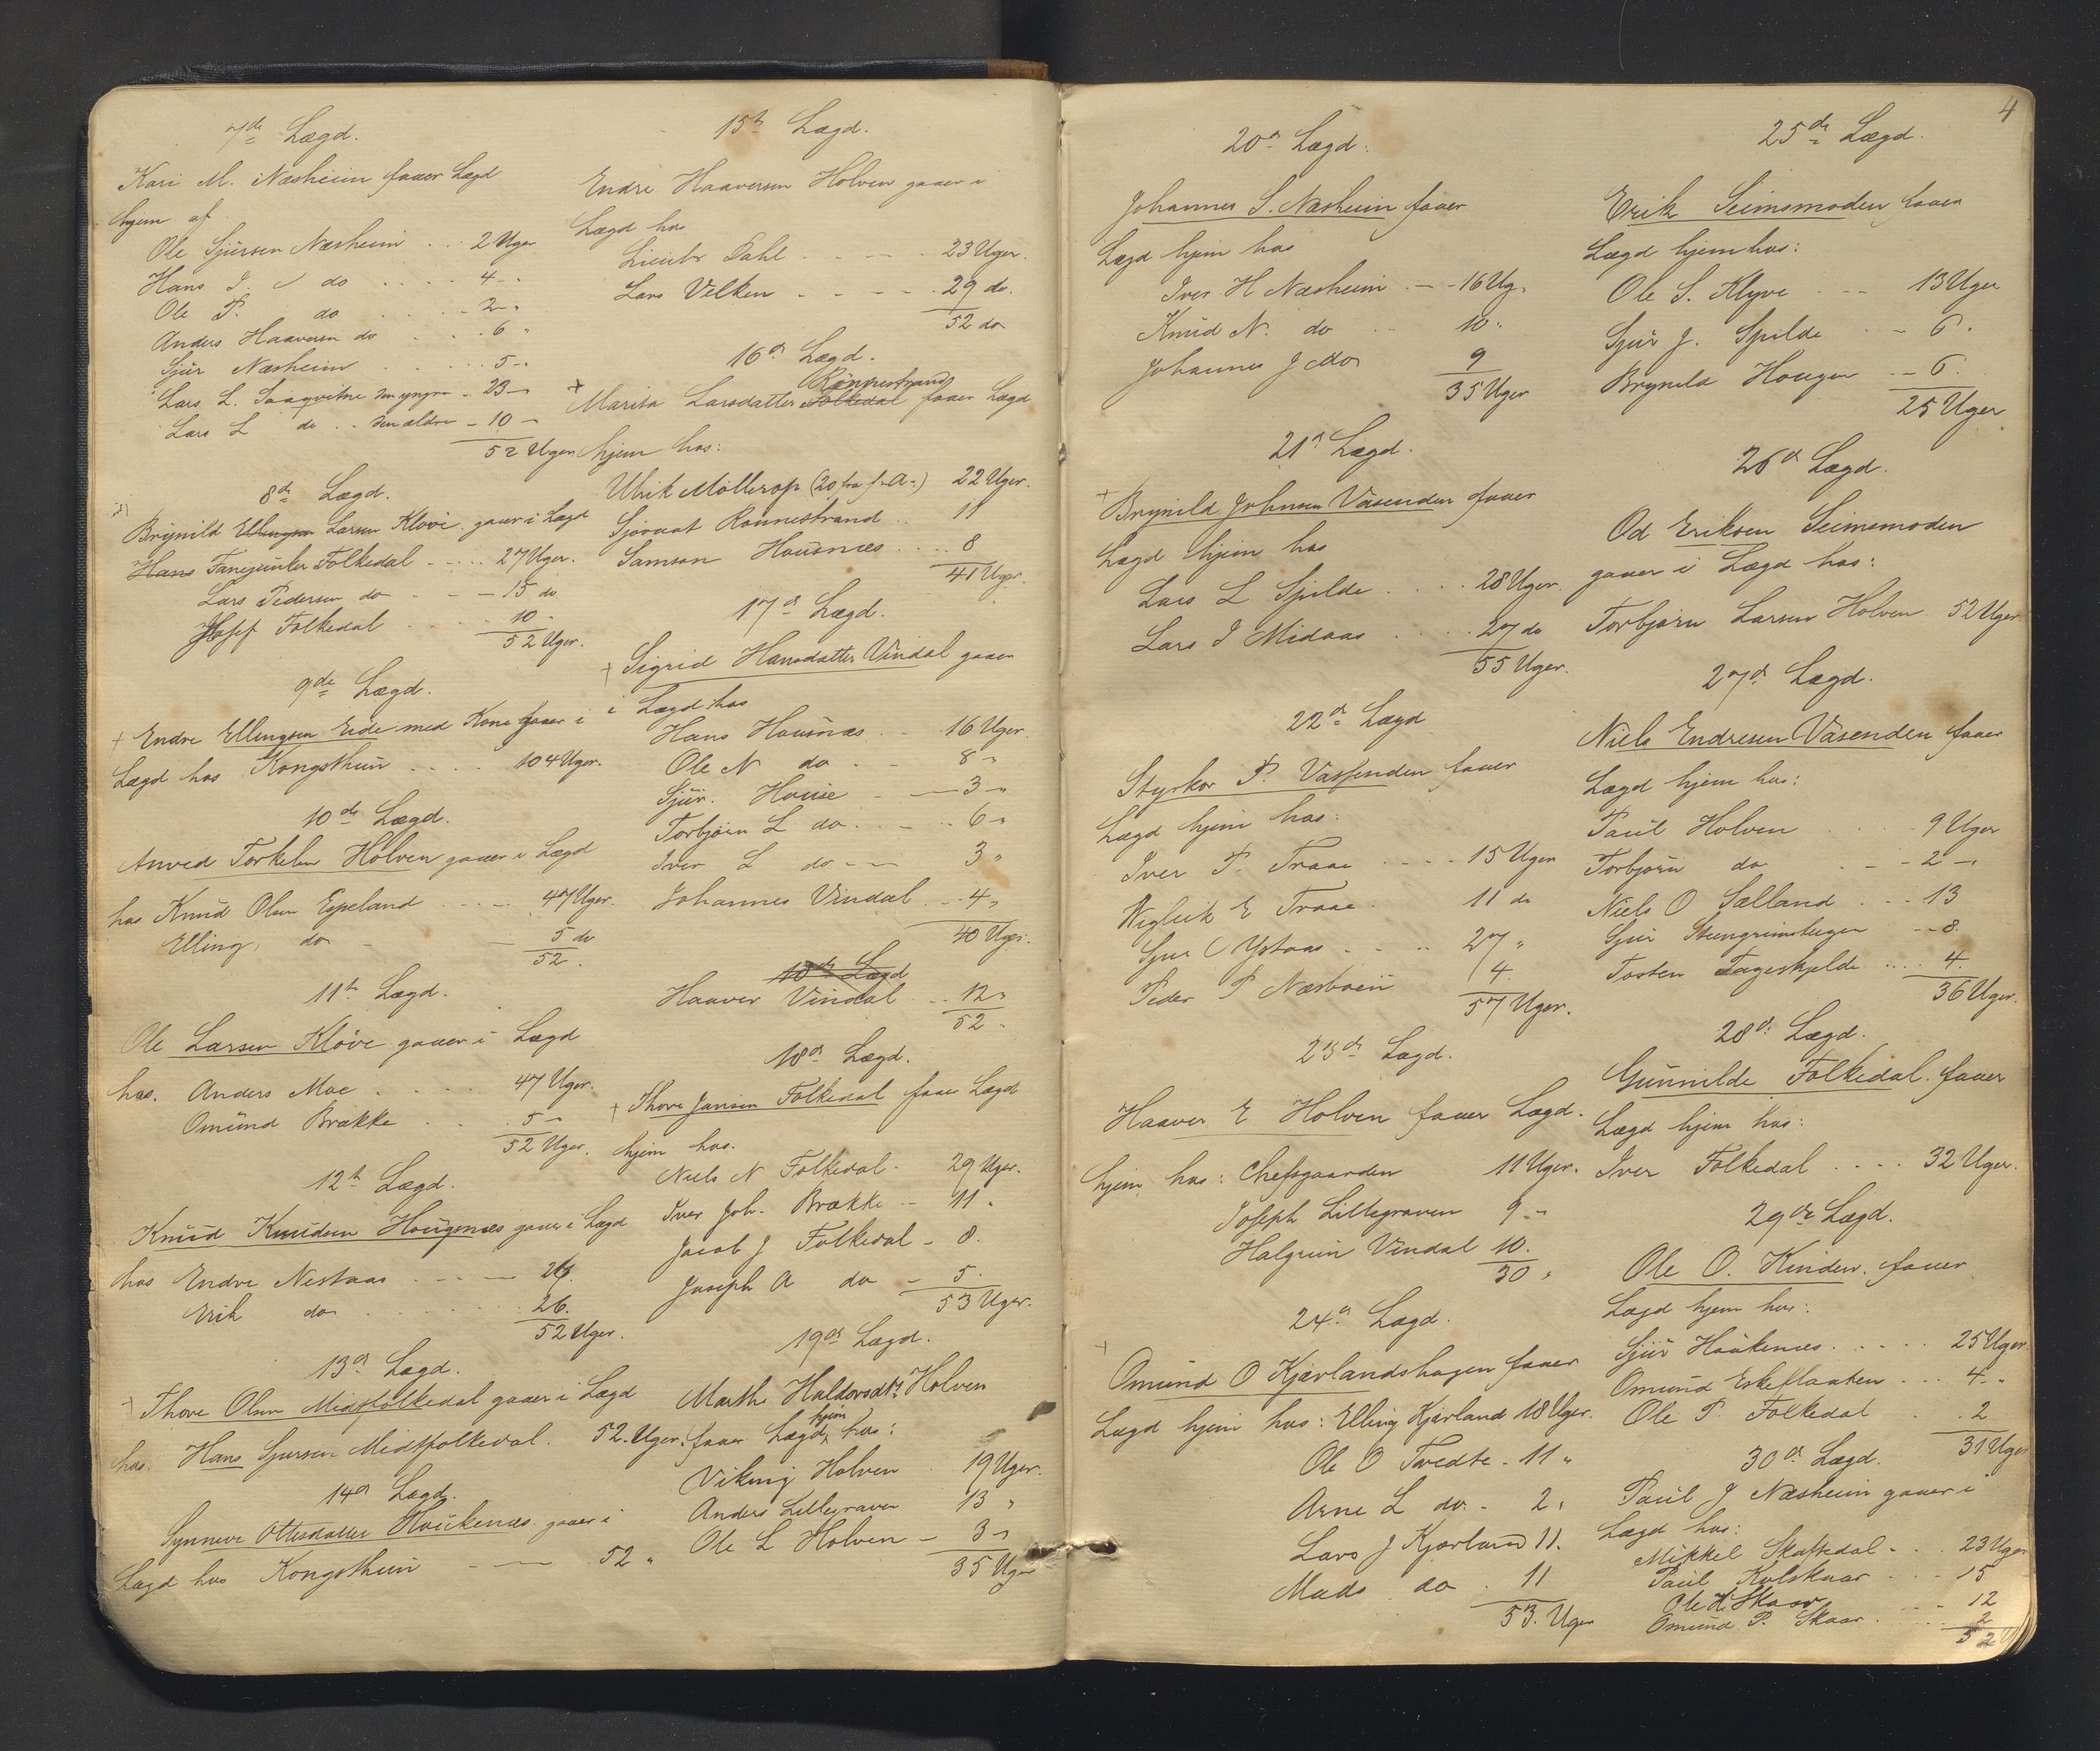 7de Lægd.
Kari M. Næsheim faaer Lægd
hjem af
Ole Sjursen Næsheim . . . 2 Uger
Hans I. do . . . . 4 "
Ole P. do . . . . 2 "
Anders Haaversen do . . . 6 "
Sjür Næsheim . . . . . 5 "
Lars L. Saaqvitne den yngre - 23 "
Lars L do . . den ældre - 10 "
52 Uger
8de Lægd.
Brÿnild Ellingsen Larsen Kløve gaaer i Lægd
Hans Fanejunker Folkedal . . . . 27 Uger.
Lars Pedersen do - - - 15 do
Josef Folkedal . . . . 10 "
52 Uger.
9de Lægd.
+ Endre Ellingsen Eide med Kone gaaer i
Lægd hos Kongsthun . . . . 104 Uger.
10de Lægd.
Anved Torkelsen Holven gaaer i Lægd
hos Knud Olsen Espeland . . . . 47 Uger.
Elling do - - 5 do
52.
11te Lægd.
Ole Larsen Kløve gaaer i Lægd
hos. Anders Moe . . . . 47 Uger.
Omünd Brække . . . 5 "
52 Uger.
12te Lægd.
Knüd Knudsen Hougenæs gaaer i Lægd
hos Endre Nestaas . . . . 26.
Erik do . . . . . . 26.
52 Uger.
13de Lægd.
+ Thore Olsen Midtfolkedal gaaer i Lægd
hos. Hans Sjursen Midtfolkedal. 52. Uger.
14de Lægd.
Synneve Ottesdatter Haukenæs gaaer i
Lægd hos Kongsthun - - - 52 "
15de Lægd.
Endre Haaversen Holven gaaer i
Lægd hos
Lieutn Dahl . . . . . 23 Uger.
Lars Velken . . . . . 29 do.
52 do
16de Lægd.
Rönnestrand
+ Marita Larsdatter Folkedal faaer Lægd
hjem hos:
Ulrik Møllerop (20 fra f. A.) 22 Uger.
Sjovat Rønnestrand . . 11
Samson Housnæs . . . . 8
41 Uger.
17de Lægd.
+ Sigrid Hansdatter Vindal gaaer
i Lægd hos
Hans Housnæs . . - 16 Uger.
Ole N do - - 8 "
Sjür. House - - 3 "
Torbjørn L do . . . . 6 "
Iver L do - - 3 "
Johannes Vindal . . - 4 "
40 Uger.
18de Lægd
Haaver Vindal . . . 12 "
52 -
18de Lægd.
+ Thore Jansen Folkedal faaer Lægd
hjem hos.
Niels N Folkedal - 29 Uger.
Iver Joh. Brække - - 11 "
Jacob J Folkedal - 8.
Joseph A do - 5.
53 Uger.
19de Lægd.
Marthe Haldorsdtr Holven
hjem
faaer Lægd hos:
Viking Holven . 19 Uger.
Anders Lillegraven 13 "
Ole L Holven - 3 "
35 Uger
4
20de Lægd.
Johannes S. Næsheim faaer
Lægd hjem hos
Iver H Næsheim . - - 16 Ug.
Knüd N. do . . . 10.
Johannes J do 9
35 Uger
21de Lægd.
+ Brynild Johnsen Väsenden faaer
Lægd hjem hos
Lars L Spilde . . . 28 Uger.
Lars I Midaas . . . . 27 do
55 Uger.
22de Lægd
Styrkor P. Vassenden faaer
Lægd hjem hos:
Iver P. Traae . . . - 15 Uger
Vigleik E Traae . 11 do
Sjur Ystaas . . . . 27 "
Peder P Næsbøen 4.
57 Uger.
23de Lægd.
Haaver E Holven faaer Lægd.
hjem hos: Chefsgaarden 11 Uger.
Joseph Lillegraven 9 "
Halgrim Vindal 10.
30 "
24de Lægd.
+ Omünd O Kjærlandshagen faaer
Lægd hjem hos: Elling Kjærland 18 Uger.
Ole O Tvedte - 11 "
Arne L do - 2 "
Lars J Kjærland 11.
Mads do . 11
53. Uger
25de Lægd.
Erik Seimsmoden faaer
Lægd hjem hos:
Ole S. Klyve . - - 13 Uger
Sjur J. Spilde . . - 6.
Brynild Hougen . . - 6.
25 Uger
26de Lægd.
Od Eriksen Seimsmoden
gaaer i Lægd hos:
Torbjørn Larsen Holven 52 Uger
27de Lægd.
Niels Endresen Väsenden faaer
Lægd hjem hos:
Paül Holven . . . . 9 Uger
Torbjørn do . . - - 2 "
Niels O Salland . . . 13
Sjür Steengrimshagen - - 8.
Tosten Fageskjelde . . . 4.
36 Uger.
28de Lægd.
Günnilde Folkedal. faaer
Lægd hjem hos:
Iver Folkedal . . . . 32 Uger.
29de Lægd.
Ole O. Kinden. faaer
Lægd hjem hos:
Sjür Haükenæs . . . . . 25 Uger.
Omünd Eskeflaaten . . . 4 "
Ole P. Folkedal . . 2
31 Uger
30de Lægd.
Paül J Næsheim gaaer i
Lægd hos:
Mikkel Skaftedal . . . 23 Uger
Paül Kolskaar . . . . 15
Ole H. Skaar . - 12
Omünd P. Skaar . . . 2
52 U